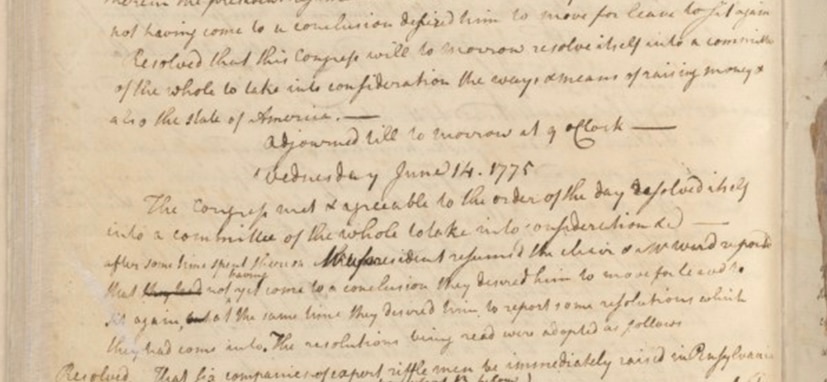 wherein the president
not having come to a conclusion desired him to move for leave to sit again
Resolved that this Congress will to morrow resolve itself into a committee
of the whole to take into consideration the ways & means of raising money &
also the state of America. —
adjourned till to morrow at 9 oClock —
Wednesday June 14. 1775
The Congress met & agreeable to the order of the day resolved itself
into a committee of the whole to take into consideration &c —
after some time spent thereon the president resumed the chair & Mr Ward reported
that they had not having yet come to a conclusion they desired him to move for leave to
sit again, but at the same time they desired him to report some resolutions which
they had come into. The resolutions being read were adopted as follows
Resolved That six companies of expert riffle men be immediately raised in Pensylvania
below)